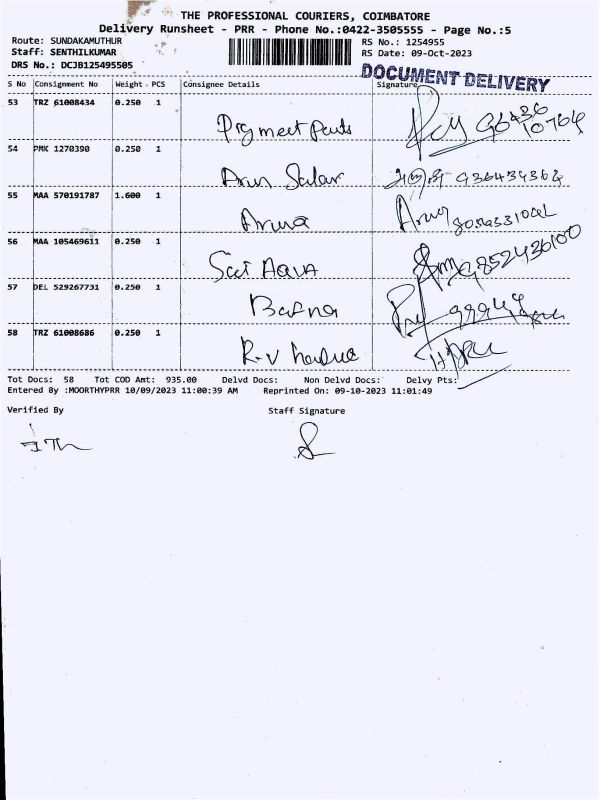 THE PROFESSIONAL COURIERS, COIMBATORE
Delivery Runsheet - PRR - Phone No.:0422-3505555 - Page No.:5
Route: SUNDAKAMUTHUR RS No.: 1254955
Staff: SENTHILKUMAR RS Date: 09-Oct-2023
DRS No.: DCJB125495505
DOCUMENT DELIVERY
S No Consignment No Weight PCS Consignee Details Signature
53 TRZ 61008434 0.250 1
54 PMK 1270390 0.250 1
Arun
55 MAA 570191787 1.600 1
Aruna
56 MAA 105469611 0.250 1
Sai 9852436100
57 DEL 529267731 0.250 1
Bafna
58 TRZ 61008686 0.250 1
R.V
Tot Docs: 58 Tot COD Amt: 935.00 Delvd Docs: Non Delvd Docs: Delvy Pts:
Entered By :MOORTHYPRR 10/09/2023 11:00:39 AM Reprinted On: 09-10-2023 11:01:49
Verified By Staff Signature